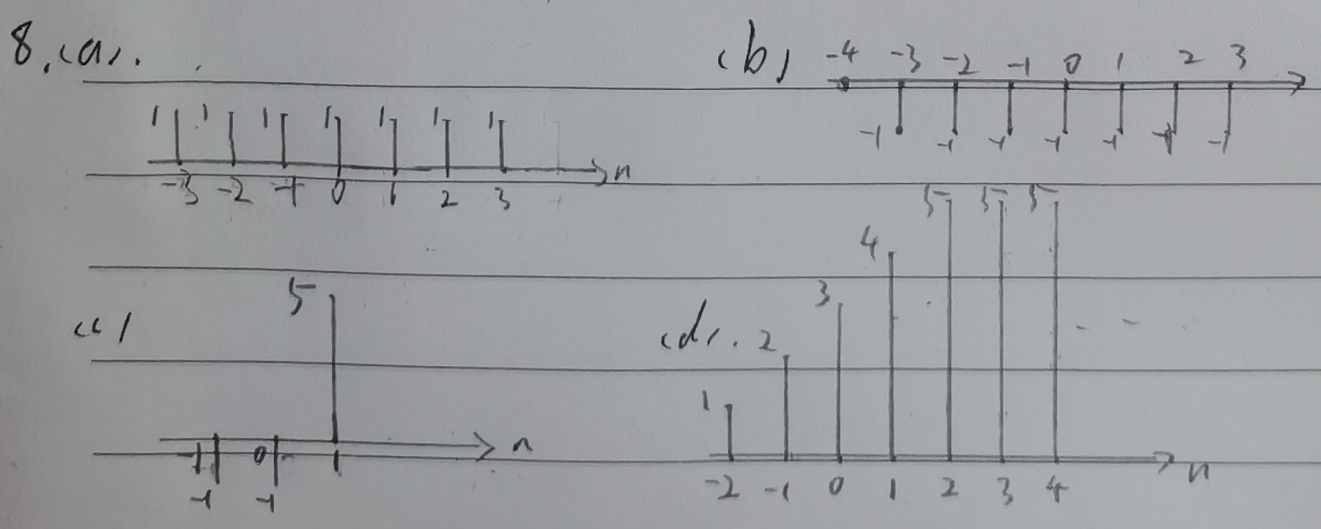 8.(a).
1 1 1 1 1 1 1
-3 -2 -1 0 1 2 3 n
(b)
-4 -3 -2 -1 0 1 2 3
-1 -1 -1 -1 -1 -1 -1
(c)
5
-1 0 1 n
-1 -1
(d).
1 2 3 4 5 5 5 - -
-2 -1 0 1 2 3 4 n